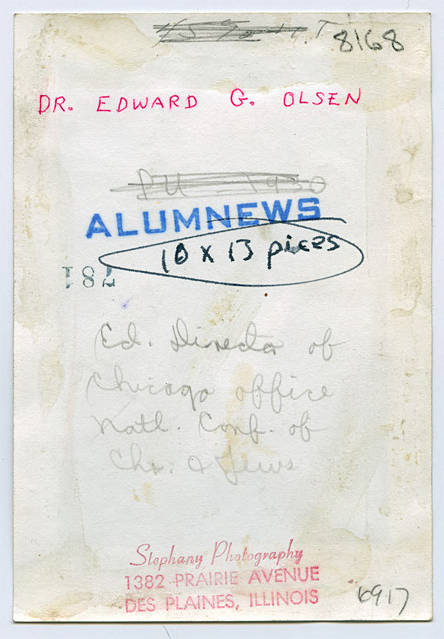 8168
DR. EDWARD G. OLSEN
PU 1930
ALUMNEWS
10 x 13 picas
781
Ed. Director of
Chicago office
Natl. Conf. of
Chr. & Jews
Stephany Photography
1382 PRAIRIE AVENUE
DES PLAINES, ILLINOIS
6917